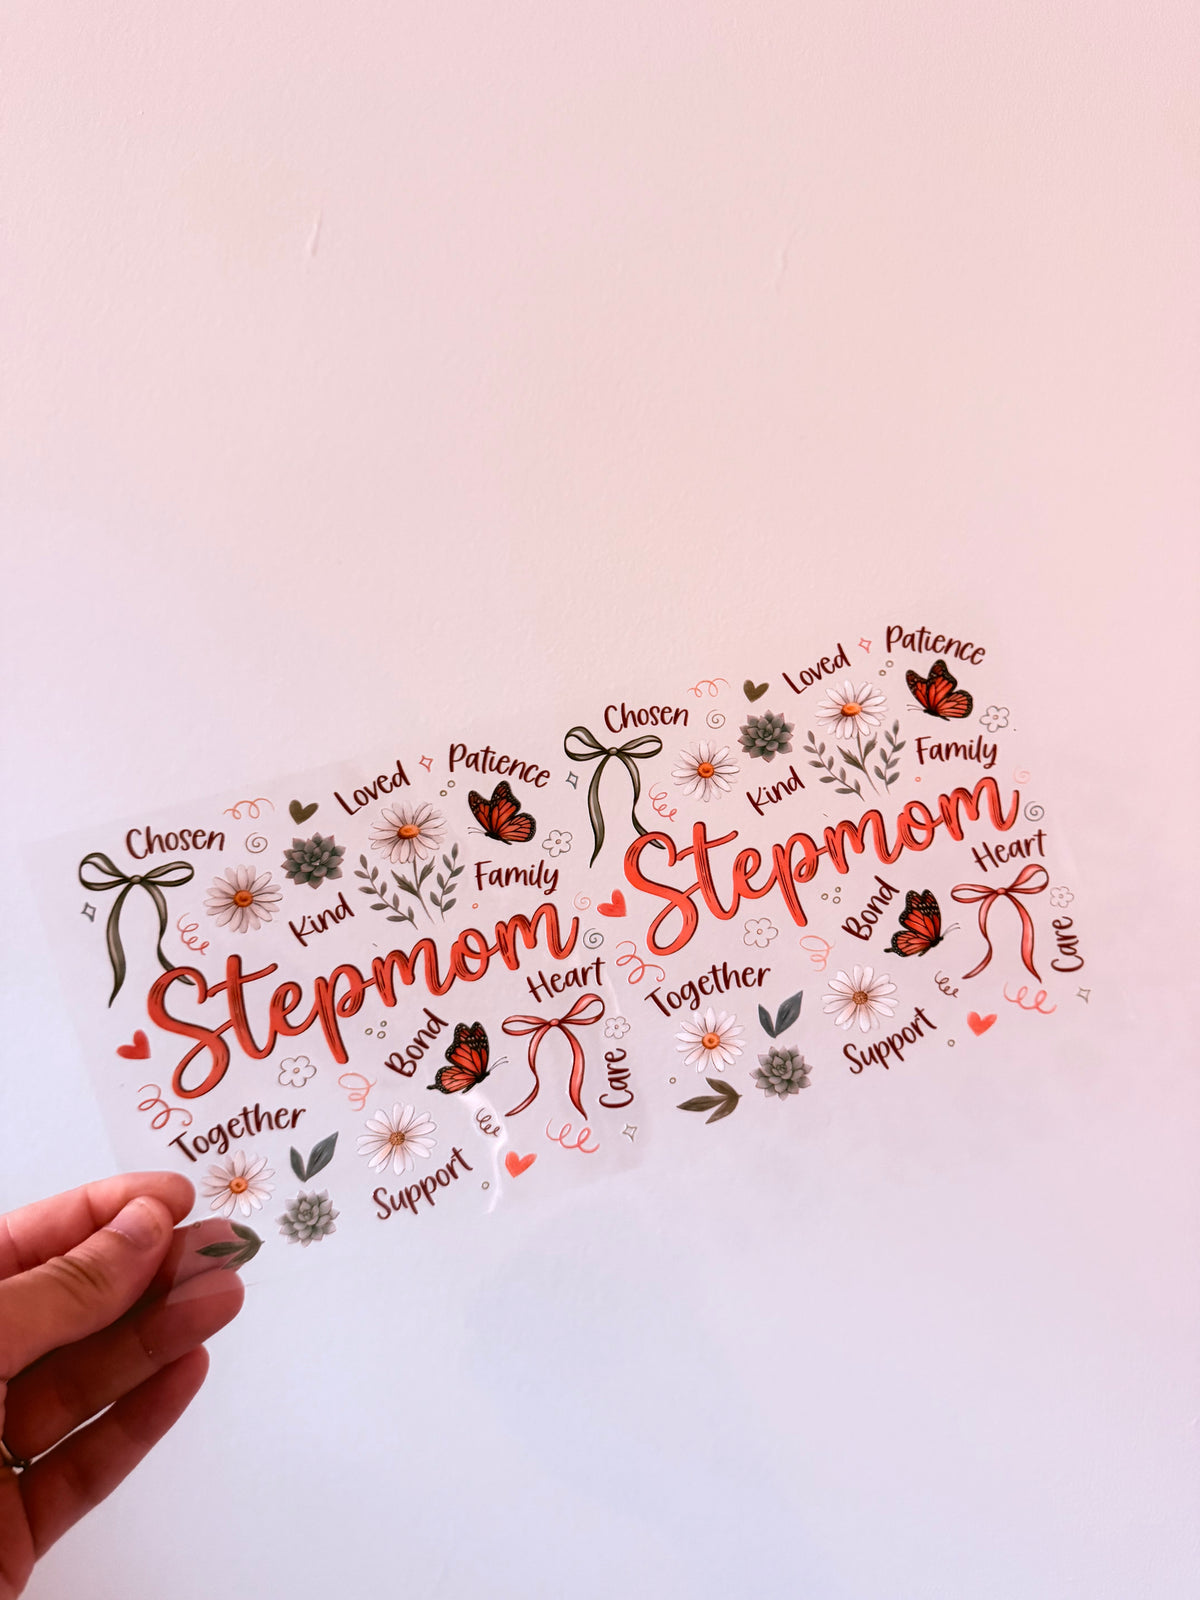 Chosen
Loved
Patience
Kind
Family
Stepmom
Heart
Bond
Care
Together
Support
Chosen
Loved
Patience
Kind
Family
Stepmom
Heart
Bond
Care
Together
Support